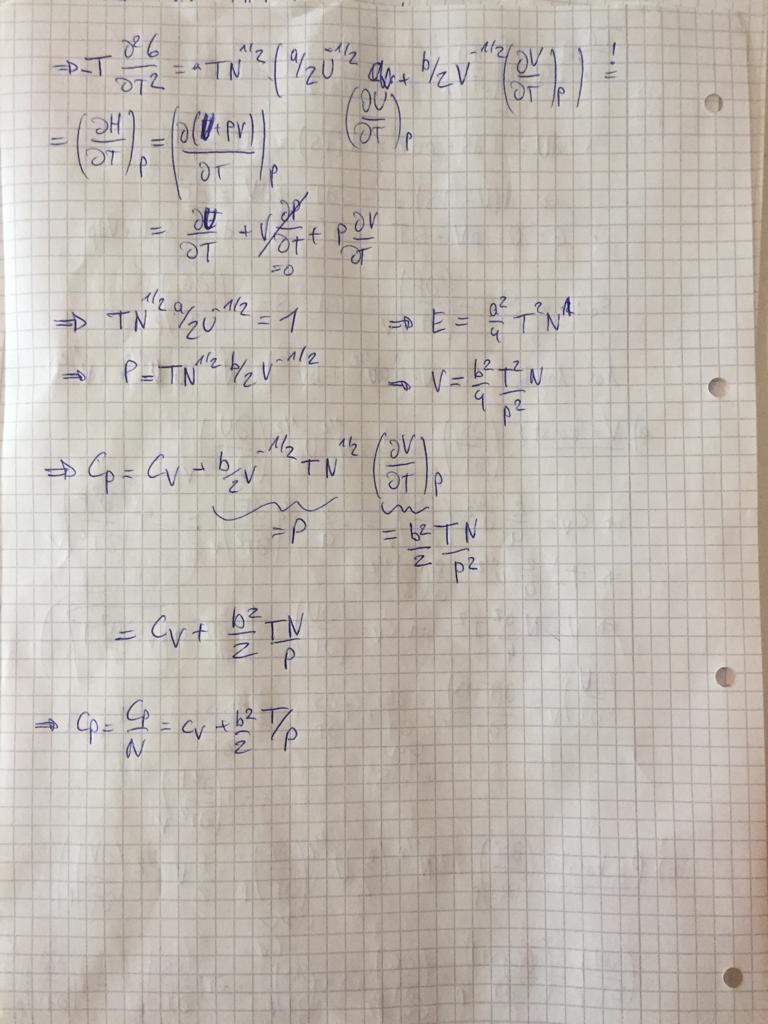 ⇒ -T ∂²G/∂T² = " TN^1/2 · (a/2 U^-1/2 + b/2 V^-1/2 (∂V/∂T)_p) =!
(∂U/∂T)_p
= (∂H/∂T)_p = (∂(U+pV)/∂T)_p
= ∂U/∂T + V ∂p/∂T + p ∂V/∂T
=0
⇒ TN^1/2 a/2 U^-1/2 = 1 ⇒ E = a²/4 T² N^1
⇒ P = TN^1/2 b/2 V^-1/2 ⇒ V = b²/4 T²/p² N
⇒ Cp = Cv + b/2 V^-1/2 TN^1/2 (∂V/∂T)_p
= P = b²/2 TN/p²
= Cv + b²/2 TN/p
⇒ cp = Cp/N = cv + b²/2 T/p